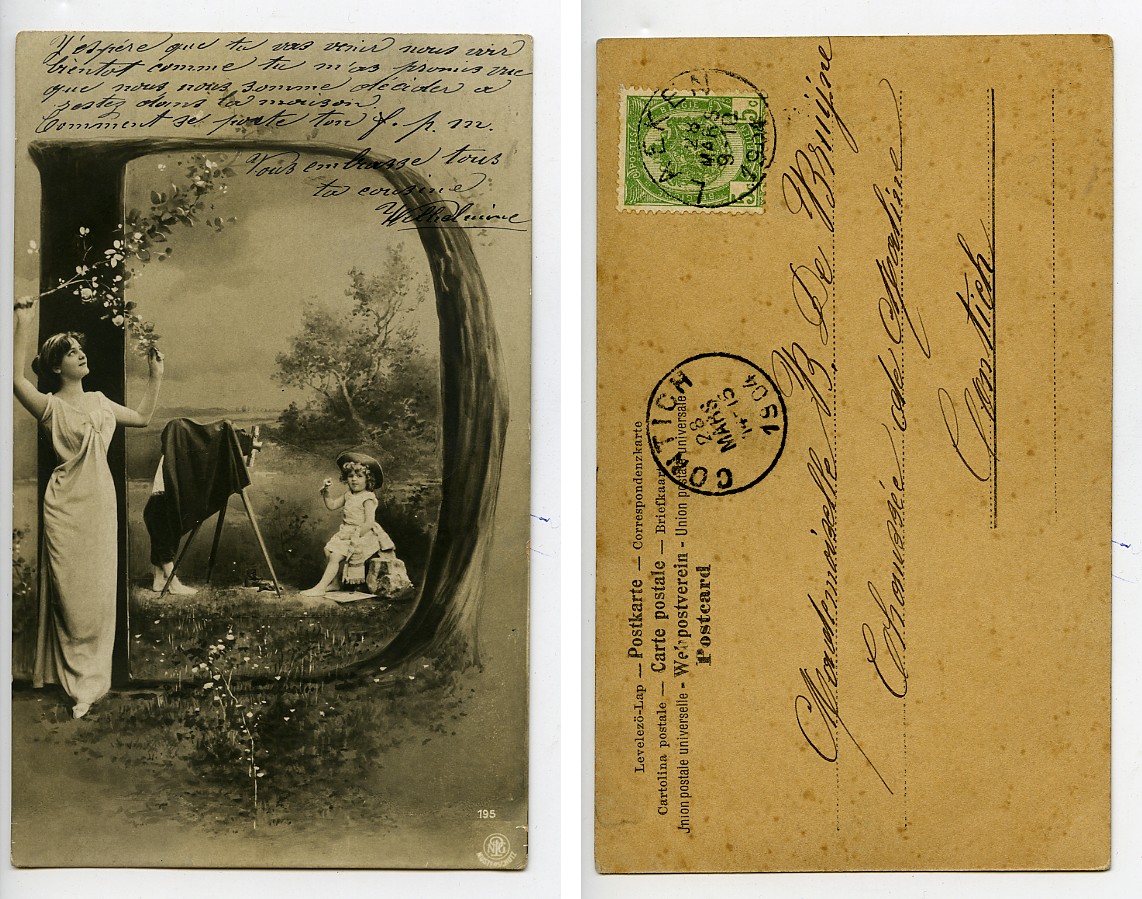 J'espére que tu vas venir nous voir
bientot comme tu m'as promis vue
que nous nous somme décider a
restez dans la maison
Comment se porte ton f. p. m.
Vous embrasse tous
ta cousine
Wilhelmine
195
NPG
LAEKEN
28
MARS
9-10
1904
POSTES
BELGIE
5c
CONTICH
28
MARS
14-15
1904
Levelezö-Lap — Postkarte — Correspondenzkarte
Cartolina postale — Carte postale — Briefkaart
Union postale universelle - Weltpostverein - Union postale universale
Postcard
Mademoiselle B De
Chaussée de Maline
Contich